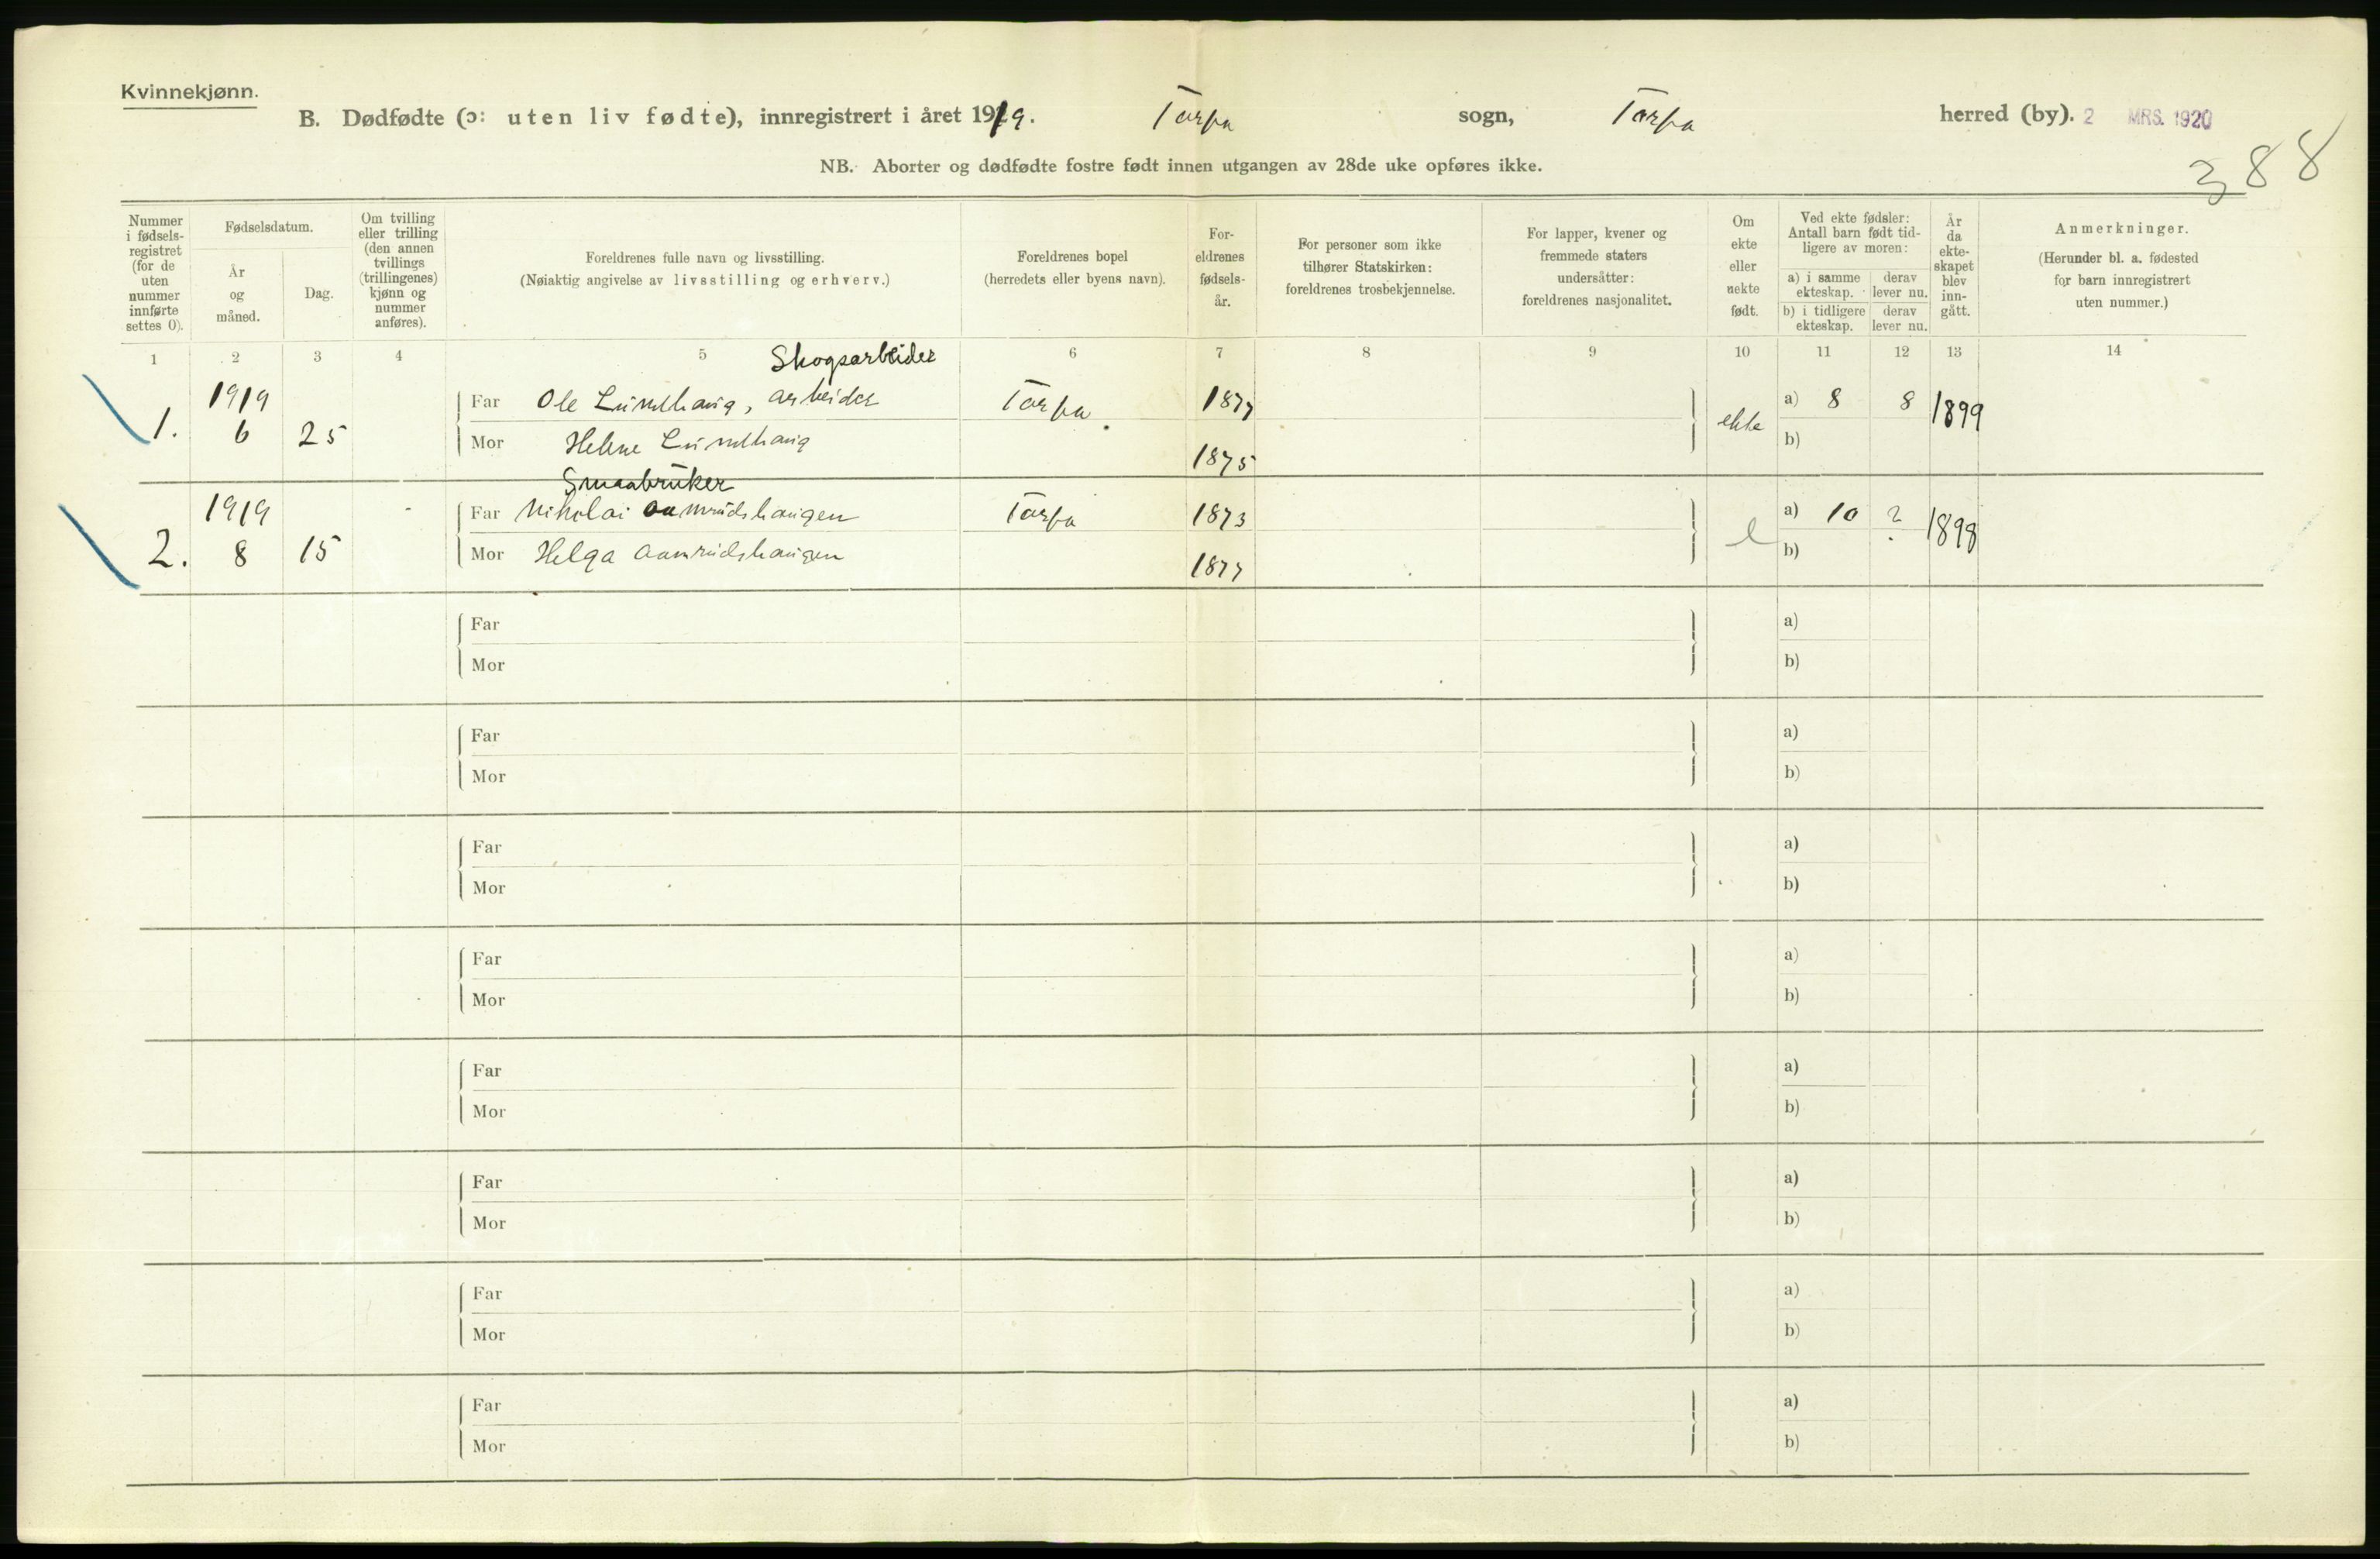 Kvinnekjønn.
B. Dødfødte (ɔ: uten liv fødte), innregistrert i året 1919. Torpa sogn, Torpa herred (by). 2 MRS. 1920
NB. Aborter og dødfødte fostre født innen utgangen av 28de uke opføres ikke.
388
Nummer i fødsels-registret (for de uten nummer innførte settes 0).
Fødselsdatum.
År og måned.
Dag.
Om tvilling eller trilling (den annen tvillings (trillingenes) kjønn og nummer anføres).
Foreldrenes fulle navn og livsstilling.
(Nøiaktig angivelse av livsstilling og erhverv.)
Foreldrenes bopel
(herredets eller byens navn).
For-eldrenes fødsels-år.
For personer som ikke tilhører Statskirken: foreldrenes trosbekjennelse.
For lapper, kvener og fremmede staters undersåtter: foreldrenes nasjonalitet.
Om ekte eller uekte født.
Ved ekte fødsler: Antall barn født tid-ligere av moren:
a) i samme ekteskap. derav lever nu.
b) i tidligere ekteskap. derav lever nu.
År da ekte-skapet blev inn-gått.
Anmerkninger.
(Herunder bl. a. fødested for barn innregistrert uten nummer.)
1 2 3 4 5 6 7 8 9 10 11 12 13 14
Skogsarbeider
1919 Far Ole Lundhaug, arbeider Torpa 1877 a) 8 8 1899
1. 6 25 Mor Helene Lundhaug 1875 ekte b)
Smaabruker
1919 Far Nikolai Aamrudshaugen Torpa 1873 a) 10 ? 1898
2. 8 15 Mor Helga Aamrudshaugen 1877 e b)
Far a)
Mor b)
Far a)
Mor b)
Far a)
Mor b)
Far a)
Mor b)
Far a)
Mor b)
Far a)
Mor b)
Far a)
Mor b)
Far a)
Mor b)